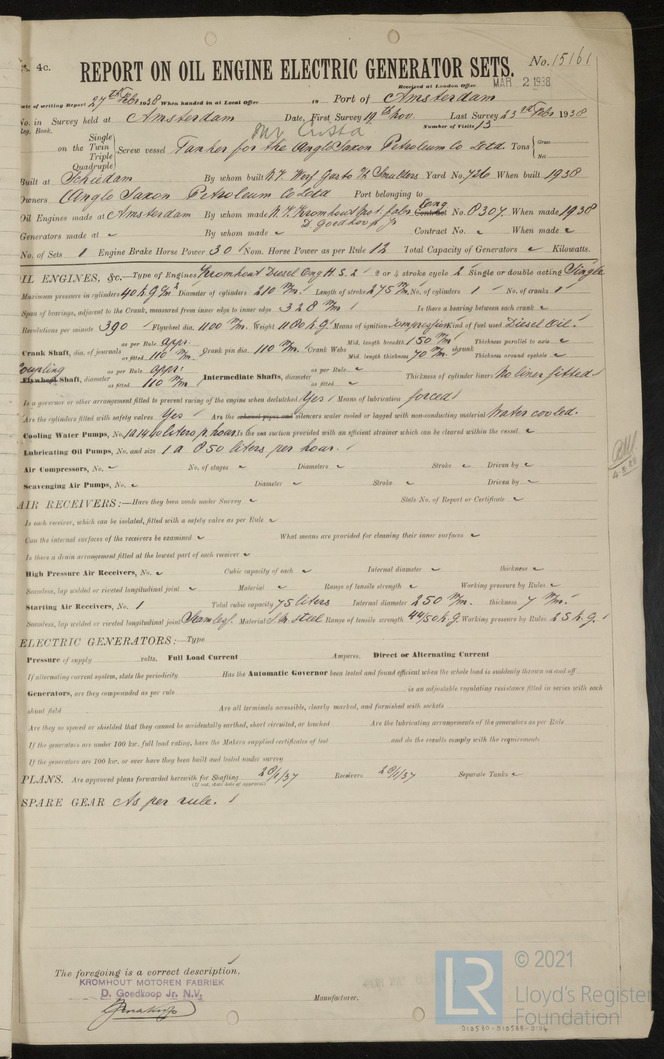 4c.
REPORT ON OIL ENGINE ELECTRIC GENERATOR SETS.
No. 15161
Received at London Office MAR 2 1938
Date of writing Report 24th Feb 1938 When handed in at Local Office 19 Port of Amsterdam
No. in Survey held at Amsterdam Date, First Survey 19th Nov Last Survey 23rd Febr. 1938
Reg. Book. Number of Visits 13
Single
on the Twin Triple Quadruple Screw vessel Tanker for the Anglo Saxon Petroleum Co Ltd Tons Gross Net
Built at Schiedam By whom built N.V. Werf Gusto Yard No. 726 When built 1938
Owners Anglo Saxon Petroleum Co Ltd Port belonging to
Oil Engines made at Amsterdam By whom made N.V. Kromhout Mot. fabr. D. Goedkoop Jr Contract Eng No. 8307. When made 1938
Generators made at By whom made Contract No. When made
No. of Sets 1 Engine Brake Horse Power 30 Nom. Horse Power as per Rule 12 Total Capacity of Generators Kilowatts.
OIL ENGINES, &c.—Type of Engines Kromhout Diesel Eng H.S.2 2 or 4 stroke cycle 2 Single or double acting Single
Maximum pressure in cylinders 40 kg/cm² Diameter of cylinders 210 m/m. Length of stroke 275 m/m. No. of cylinders 1 No. of cranks 1
Span of bearings, adjacent to the Crank, measured from inner edge to inner edge 328 m/m Is there a bearing between each crank
Revolutions per minute 390 Flywheel dia. 1100 m/m. Weight 1180 k.g. Means of ignition Compression Kind of fuel used Diesel Oil.
Crank Shaft, dia. of journals as per Rule appr. as fitted 110 m/m. Crank pin dia. 110 m/m. Crank Webs Mid. length breadth 150 m/m Mid. length thickness 70 m/m. shrunk Thickness parallel to axis Thickness around eyehole
Coupling Flywheel Shaft, diameter as per Rule appr. as fitted 110 m/m Intermediate Shafts, diameter as per Rule as fitted Thickness of cylinder liners No liner fitted
Is a governor or other arrangement fitted to prevent racing of the engine when declutched Yes Means of lubrication forced
Are the cylinders fitted with safety valves Yes Are the exhaust pipes and silencers water cooled or lagged with non-conducting material Water cooled.
Cooling Water Pumps, No. 1 a 1440 liters p. hour. Is the sea suction provided with an efficient strainer which can be cleared within the vessel
Lubricating Oil Pumps, No. and size 1 a 850 liters per hour.
Air Compressors, No. No. of stages Diameters Stroke Driven by
Scavenging Air Pumps, No. Diameter Stroke Driven by
AIR RECEIVERS:—Have they been made under Survey State No. of Report or Certificate
Is each receiver, which can be isolated, fitted with a safety valve as per Rule
Can the internal surfaces of the receivers be examined What means are provided for cleaning their inner surfaces
Is there a drain arrangement fitted at the lowest part of each receiver
High Pressure Air Receivers, No. Cubic capacity of each Internal diameter thickness
Seamless, lap welded or riveted longitudinal joint Material Range of tensile strength Working pressure by Rules
Starting Air Receivers, No. 1 Total cubic capacity 75 liters Internal diameter 250 m/m. thickness 7 m/m.
Seamless, lap welded or riveted longitudinal joint Seamless Material S.M. steel Range of tensile strength 44/50 k.g. Working pressure by Rules 25 k.g.
ELECTRIC GENERATORS:—Type
Pressure of supply volts. Full Load Current Amperes. Direct or Alternating Current
If alternating current system, state the periodicity Has the Automatic Governor been tested and found efficient when the whole load is suddenly thrown on and off
Generators, are they compounded as per rule is an adjustable regulating resistance fitted in series with each
shunt field Are all terminals accessible, clearly marked, and furnished with sockets
Are they so spaced or shielded that they cannot be accidentally earthed, short circuited, or touched Are the lubricating arrangements of the generators as per Rule
If the generators are under 100 kw. full load rating, have the Makers supplied certificates of test and do the results comply with the requirements
If the generators are 100 kw. or over have they been built and tested under survey
PLANS. Are approved plans forwarded herewith for Shafting 20/1/37 Receivers 20/1/37 Separate Tanks
(If not, state date of approval)
SPARE GEAR As per rule.
The foregoing is a correct description,
KROMHOUT MOTOREN FABRIEK
D. Goedkoop Jr. N.V.
Manufacturer.
LR © 2021
Lloyd's Register
Foundation